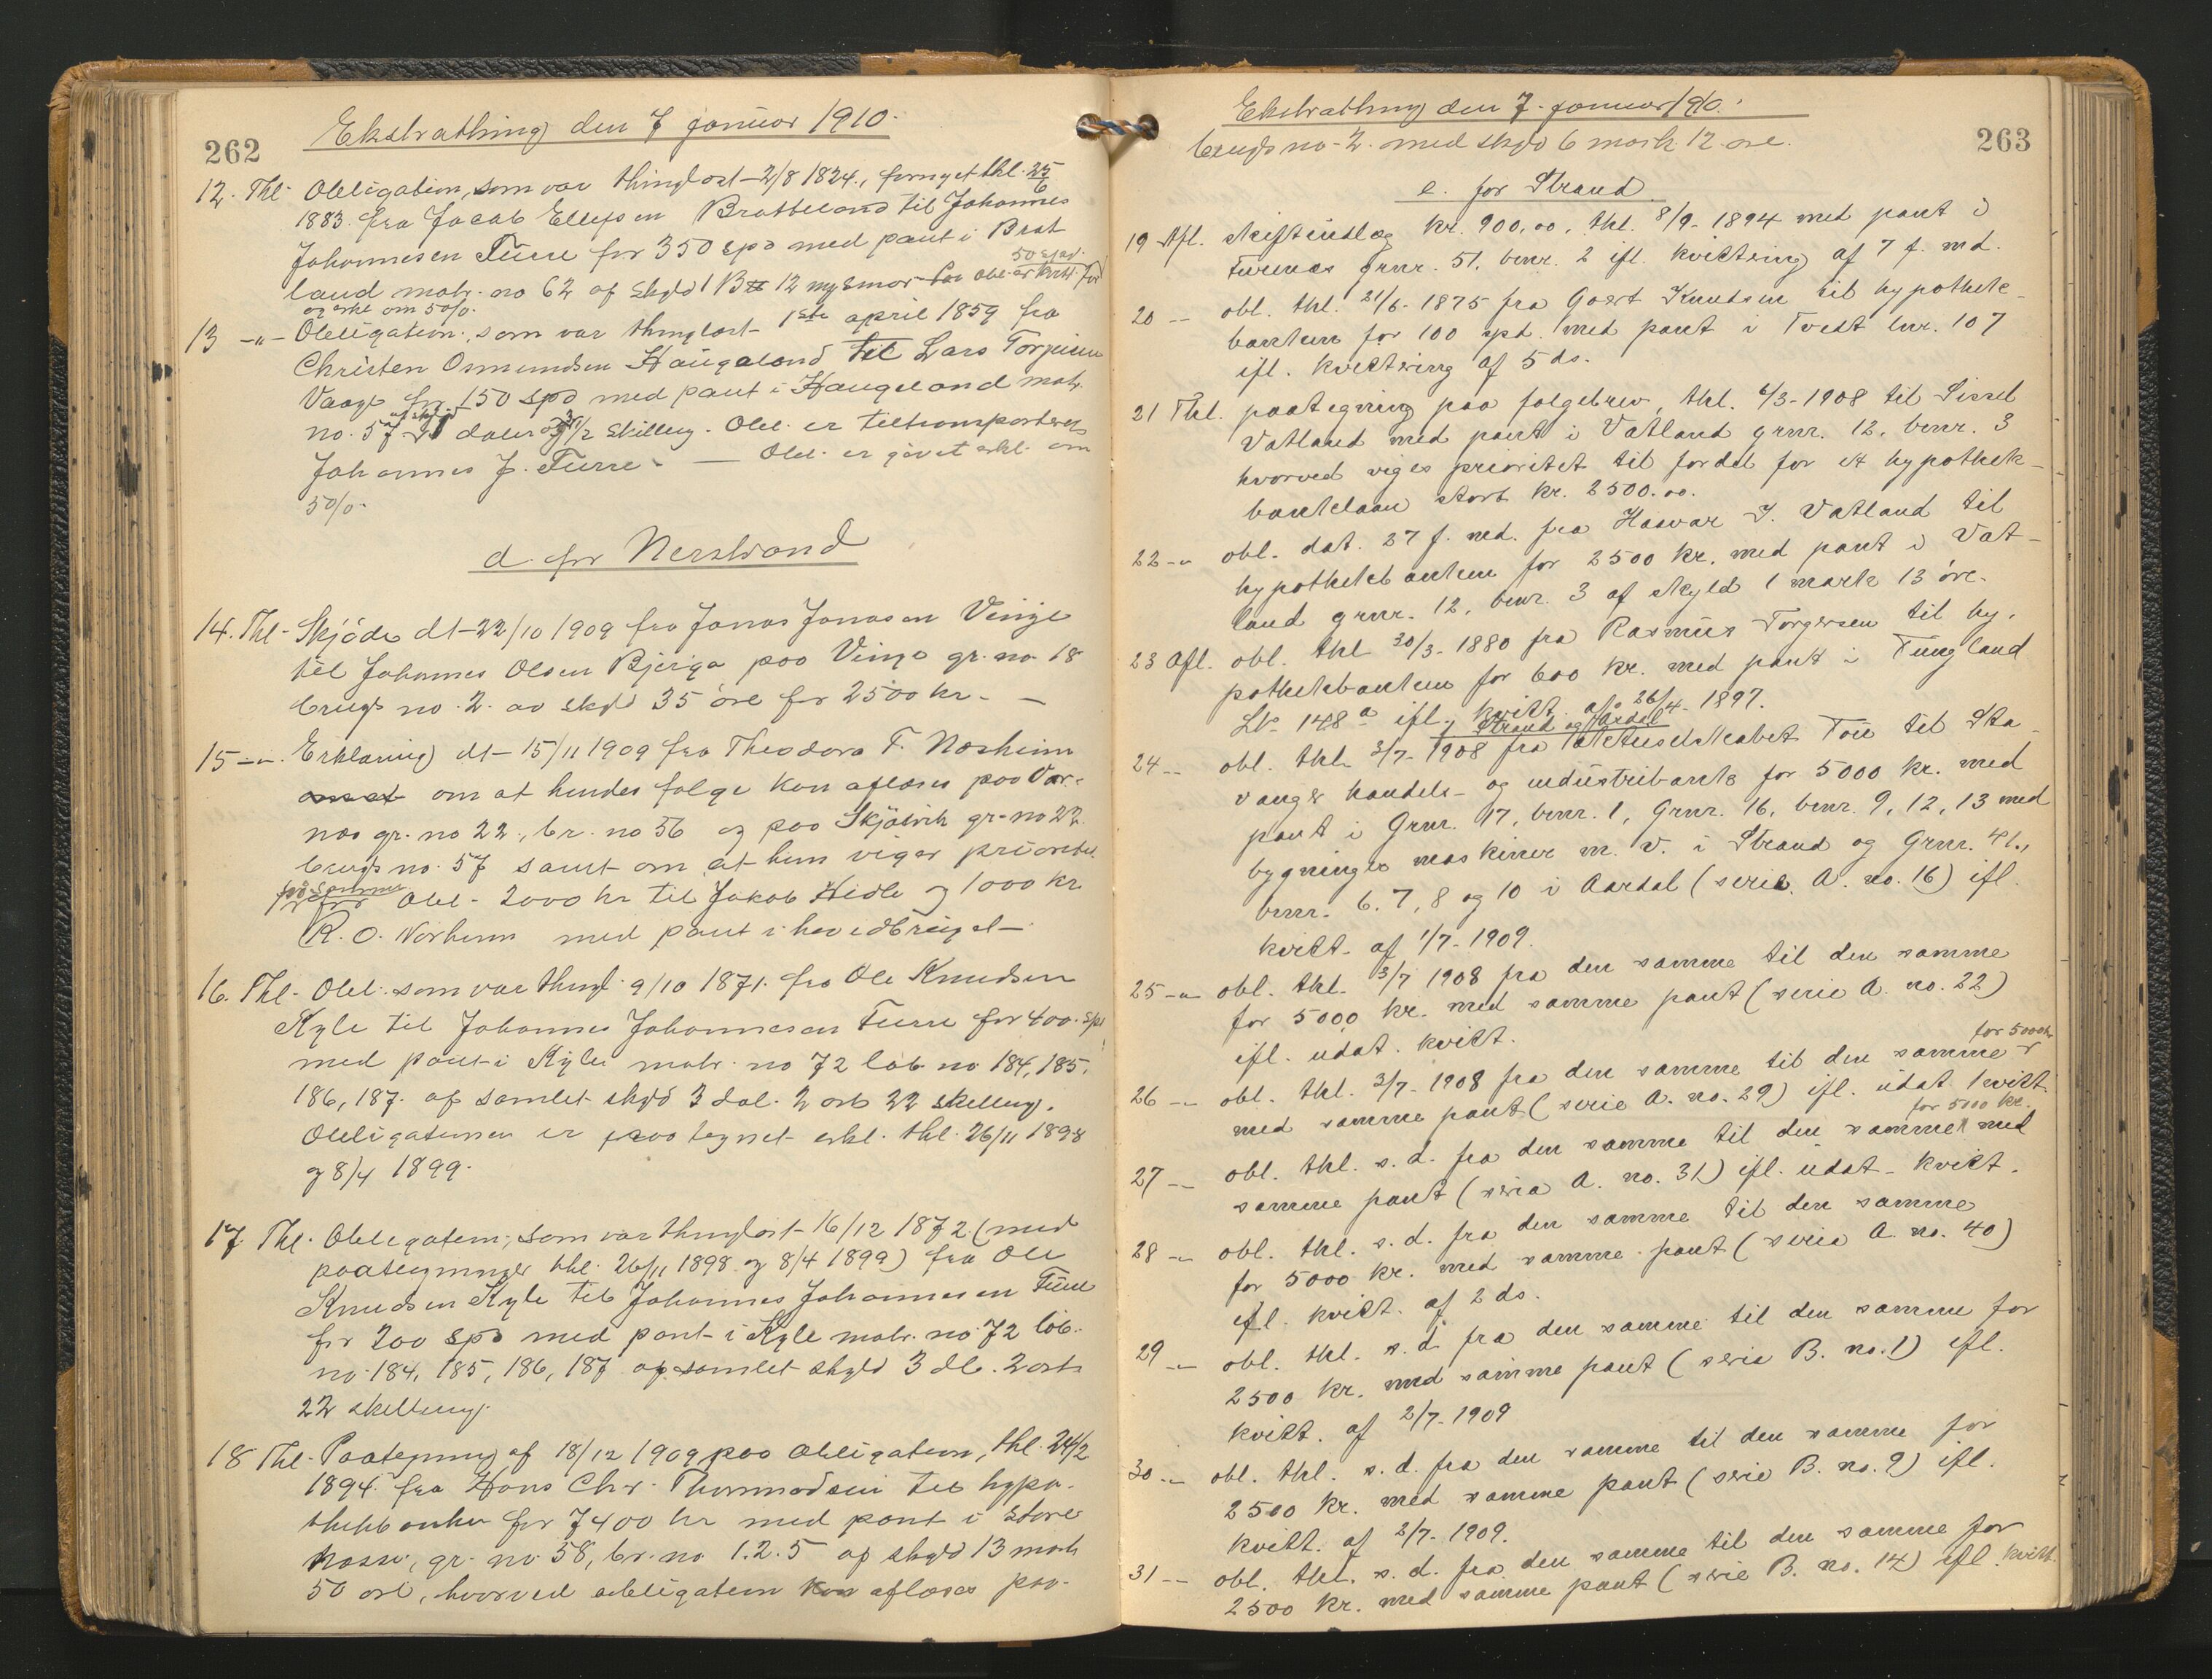 262
Ekstrathing den 7 januar 1910.
12. Thl. Obligation, som var thinglæst 2/8 1824., fornyet thl. 25/6
1883. fra Jacob Ellefsen Bratteland til Johannes
Johannesen Furre for 350 spd med pant i Brat
50 spd.
land matr. no 62 af skyld 1 B 12 mg smør obl. er kvitt. for
og erkl om 5 0/0.
13 -"- Obligation, som var thinglæst 1ste april 1859 fra
Christen Osmundsen Haugaland til Lars Torjusen
Vaage for 150 spd med pant i Haugeland matr.
no. 57 af skyld 1 daler 1/2 skilling. Obl. er tiltransporteret
Johannes J. Furre. — Obl. er givet erkl. om
5 0/0.
d. for Nerstrand
14. Thl. Skjøde dt 22/10 1909 fra Jonas Jonasen Vinge
til Johannes Olsen Bjerga paa Vinge gr. no 18
brugs no. 2. av skyld 35 øre for 2500 kr. —
15 -"- Erklæring dt 15/11 1909 fra Theodora T. Nøsheim
om at hendes følge kan aflæses paa Var-
nes gr. no 22., br. no 56 og paa Skjølvik gr. no 22.
brugs no. 57 samt om at hun viger prioritet
samme
for obl. 2000 kr til Jakob Hidle og 1000 kr
R. O. Nørheim med pant i hovedbruget —
16. Thl. Obl. som var thingl. 9/10 1871. fra Ole Knudsen
Kyle til Johannes Johannesen Furre for 400 spd
med pant i Kyle matr. no 72 løb. no 184, 185,
186, 187. af samlet skyld 3 dal. 2 ort 22 skilling.
Obligationen er paategnet erkl. thl. 26/11 1898
og 8/4 1899.
17 Thl. Obligation, som var thinglæst 16/12 1872 (med
paategninger thl. 26/11 1898 og 8/4 1899) fra Ole
Knudsen Kyle til Johannes Johannesen Furre
for 200 spd med pant i Kyle matr. no. 72 løb.
no. 184, 185, 186, 187 af samlet skyld 3 dl. 2 ort
22 skilling.
18 Thl. Paategning af 18/12 1909 paa obligation, thl. 24/2
1894. fra Hans Chr. Thormodsen til hypo-
thekbanken for 7400 kr med pant i Store
Nøsse, gr. no 58, br. no 1. 2. 5 af skyld 13 mark
50 øre, hvorved obligationen kan aflæses paa
263
Ekstrathing den 7. januar 1910.
brugs no 2. med skyld 6 mark 12 øre.
e. for Strand
19 Afl. skifteudlæg kr. 900,00, thl. 8/9. 1894 med pant i
Furenes grnr. 51, bnr. 2 ifl. kvittering af 7 f. md.
20 -- obl. thl. 21/6. 1875 fra Goert Knutsen til hypothek-
banken for 100 spd. med pant i Tvedt lnr. 107
ifl. kvittering af 5 ds.
21 Thl. paategning paa følgebrev, thl. 6/3. 1908 til Sissel
Vatland med pant i Vatland grnr. 12, bnr. 3
hvorved viges prioritet til fordel for et hypothek-
banklaan stort kr. 2500.00.
22 -"- obl. dat. 27 f. md. fra Haavar I. Vatland til
hypothekbanken for 2500 kr. med pant i Vat-
land grnr. 12, bnr. 3 af skyld 1 mark 13 øre.
23 Afl. obl. thl 30/3. 1880 fra Rasmus Torgersen til hy-
pothekbanken for 600 kr. med pant i Tungland
L. 148 a ifl. kvitt. af 26/4. 1897.
Strand og Aardal
24 -- obl. thl. 3/7. 1908 fra Aktieselskabet Tou til Sta-
vanger handels- og industribank for 5000 kr. med
pant i Grnr. 17, bnr. 1, Grnr. 16, bnr. 9, 12, 13 med
bygninger maskiner m. v. i Strand og Grnr. 41.,
bnr. 6. 7, 8 og 10 i Aardal (serie A. no. 16) ifl.
kvitt. af 1/7. 1909.
25 -"- obl. thl. 3/7 1908 fra den samme til den samme
for 5000 kr. med samme pant (serie A. no. 22)
ifl. udat. kvitt.
for 5000 kr
26 -- obl. thl. 3/7. 1908 fra den samme til den samme
med samme pant (serie A. no. 29) ifl. udat. kvitt.
for 5000 kr.
27 -- obl. thl. s. d. fra den samme til den samme med
samme pant (serie A. no. 31) ifl. udat. kvitt.
28 -"- obl. thl. s. d. fra den samme til den samme
for 5000 kr. med samme pant (serie A. no. 40)
ifl. kvitt. af 2 ds.
29 -"- obl. thl. s. d. fra den samme til den samme for
2500 kr. med samme pant (serie B. no. 1) ifl.
kvitt. af 2/7. 1909
30 -"- obl. thl. s. d. fra den samme til den samme for
2500 kr. med samme pant (serie B. no. 9) ifl.
kvitt. af 2/7. 1909.
31 -- obl. thl. s. d. fra den samme til den samme for
2500 kr. med samme pant (serie B. no. 14) ifl. kvitt.